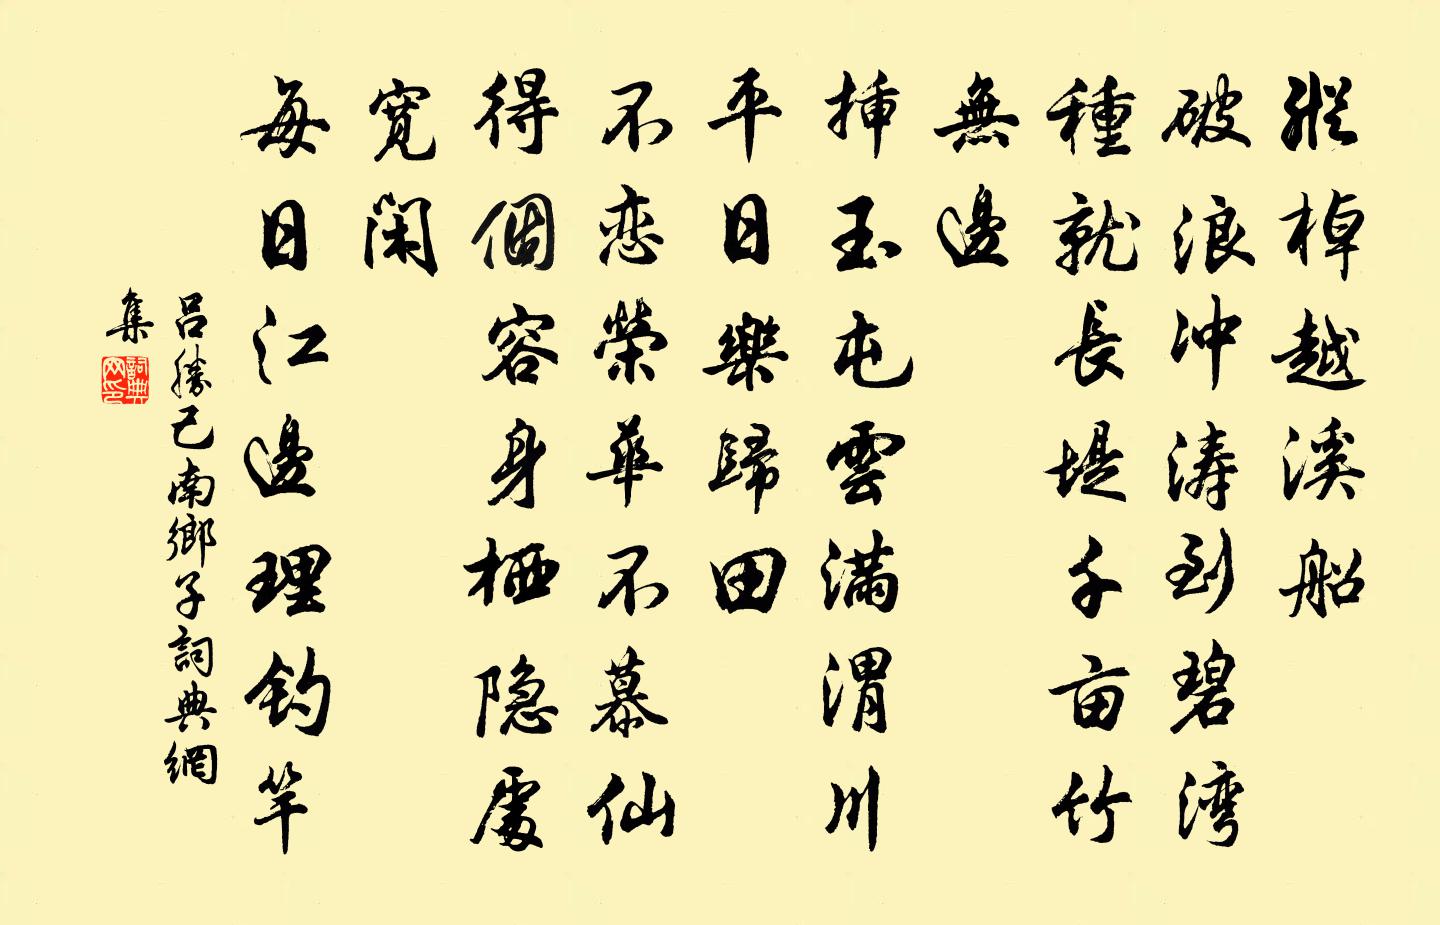 縱棹越溪船
破浪沖涛到碧湾
種就長堤千亩竹
無邊
挿玉屯雲满渭川
平日樂歸田
不恋榮華不慕仙
得個容身栖隐處
寬闲
每日江邊理钓竿
吕勝己南鄉子詞典網
集
詞典
网印